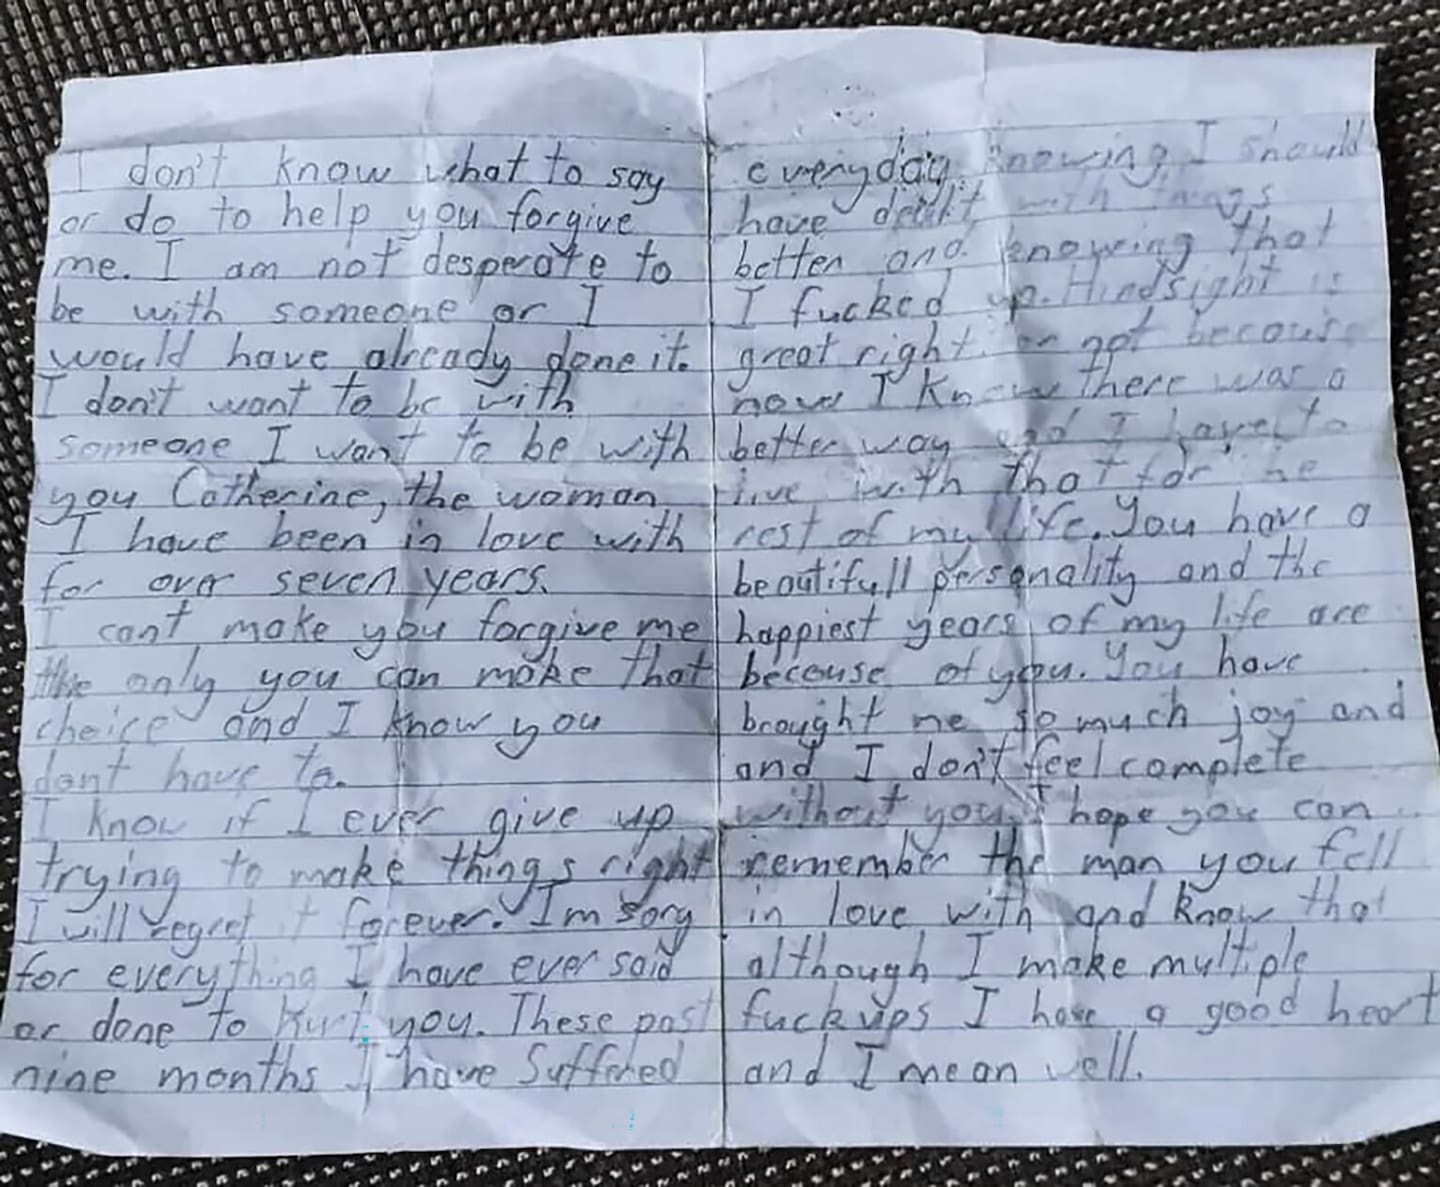 I don't know what to say
or do to help you forgive
me. I am not desperate to
be with someone or I
would have already done it.
I don't want to be with
someone I want to be with
you Catherine, the woman
I have been in love with
for over seven years.
I cant make you forgive me
the only you can make that
choice and I know you
dont have to.
I know if I ever give up
trying to make things right
I will regret it forever. Im sory
for everything I have ever said
or done to hurt you. These past
nine months I have suffered
everyday. knowing I should
have dealt with things
better and knowing that
I fucked up. Hindsight is
great right. or not because
now I know there was a
better way and I have to
live with that for the
rest of my life. You have a
beautifull personality and the
happiest years of my life are
because of you. You have
brought me so much joy and
and I don't feel complete
without you. I hope you can
remember the man you fell
in love with and know that
although I make multiple
fuck ups I have a good heart
and I mean well.